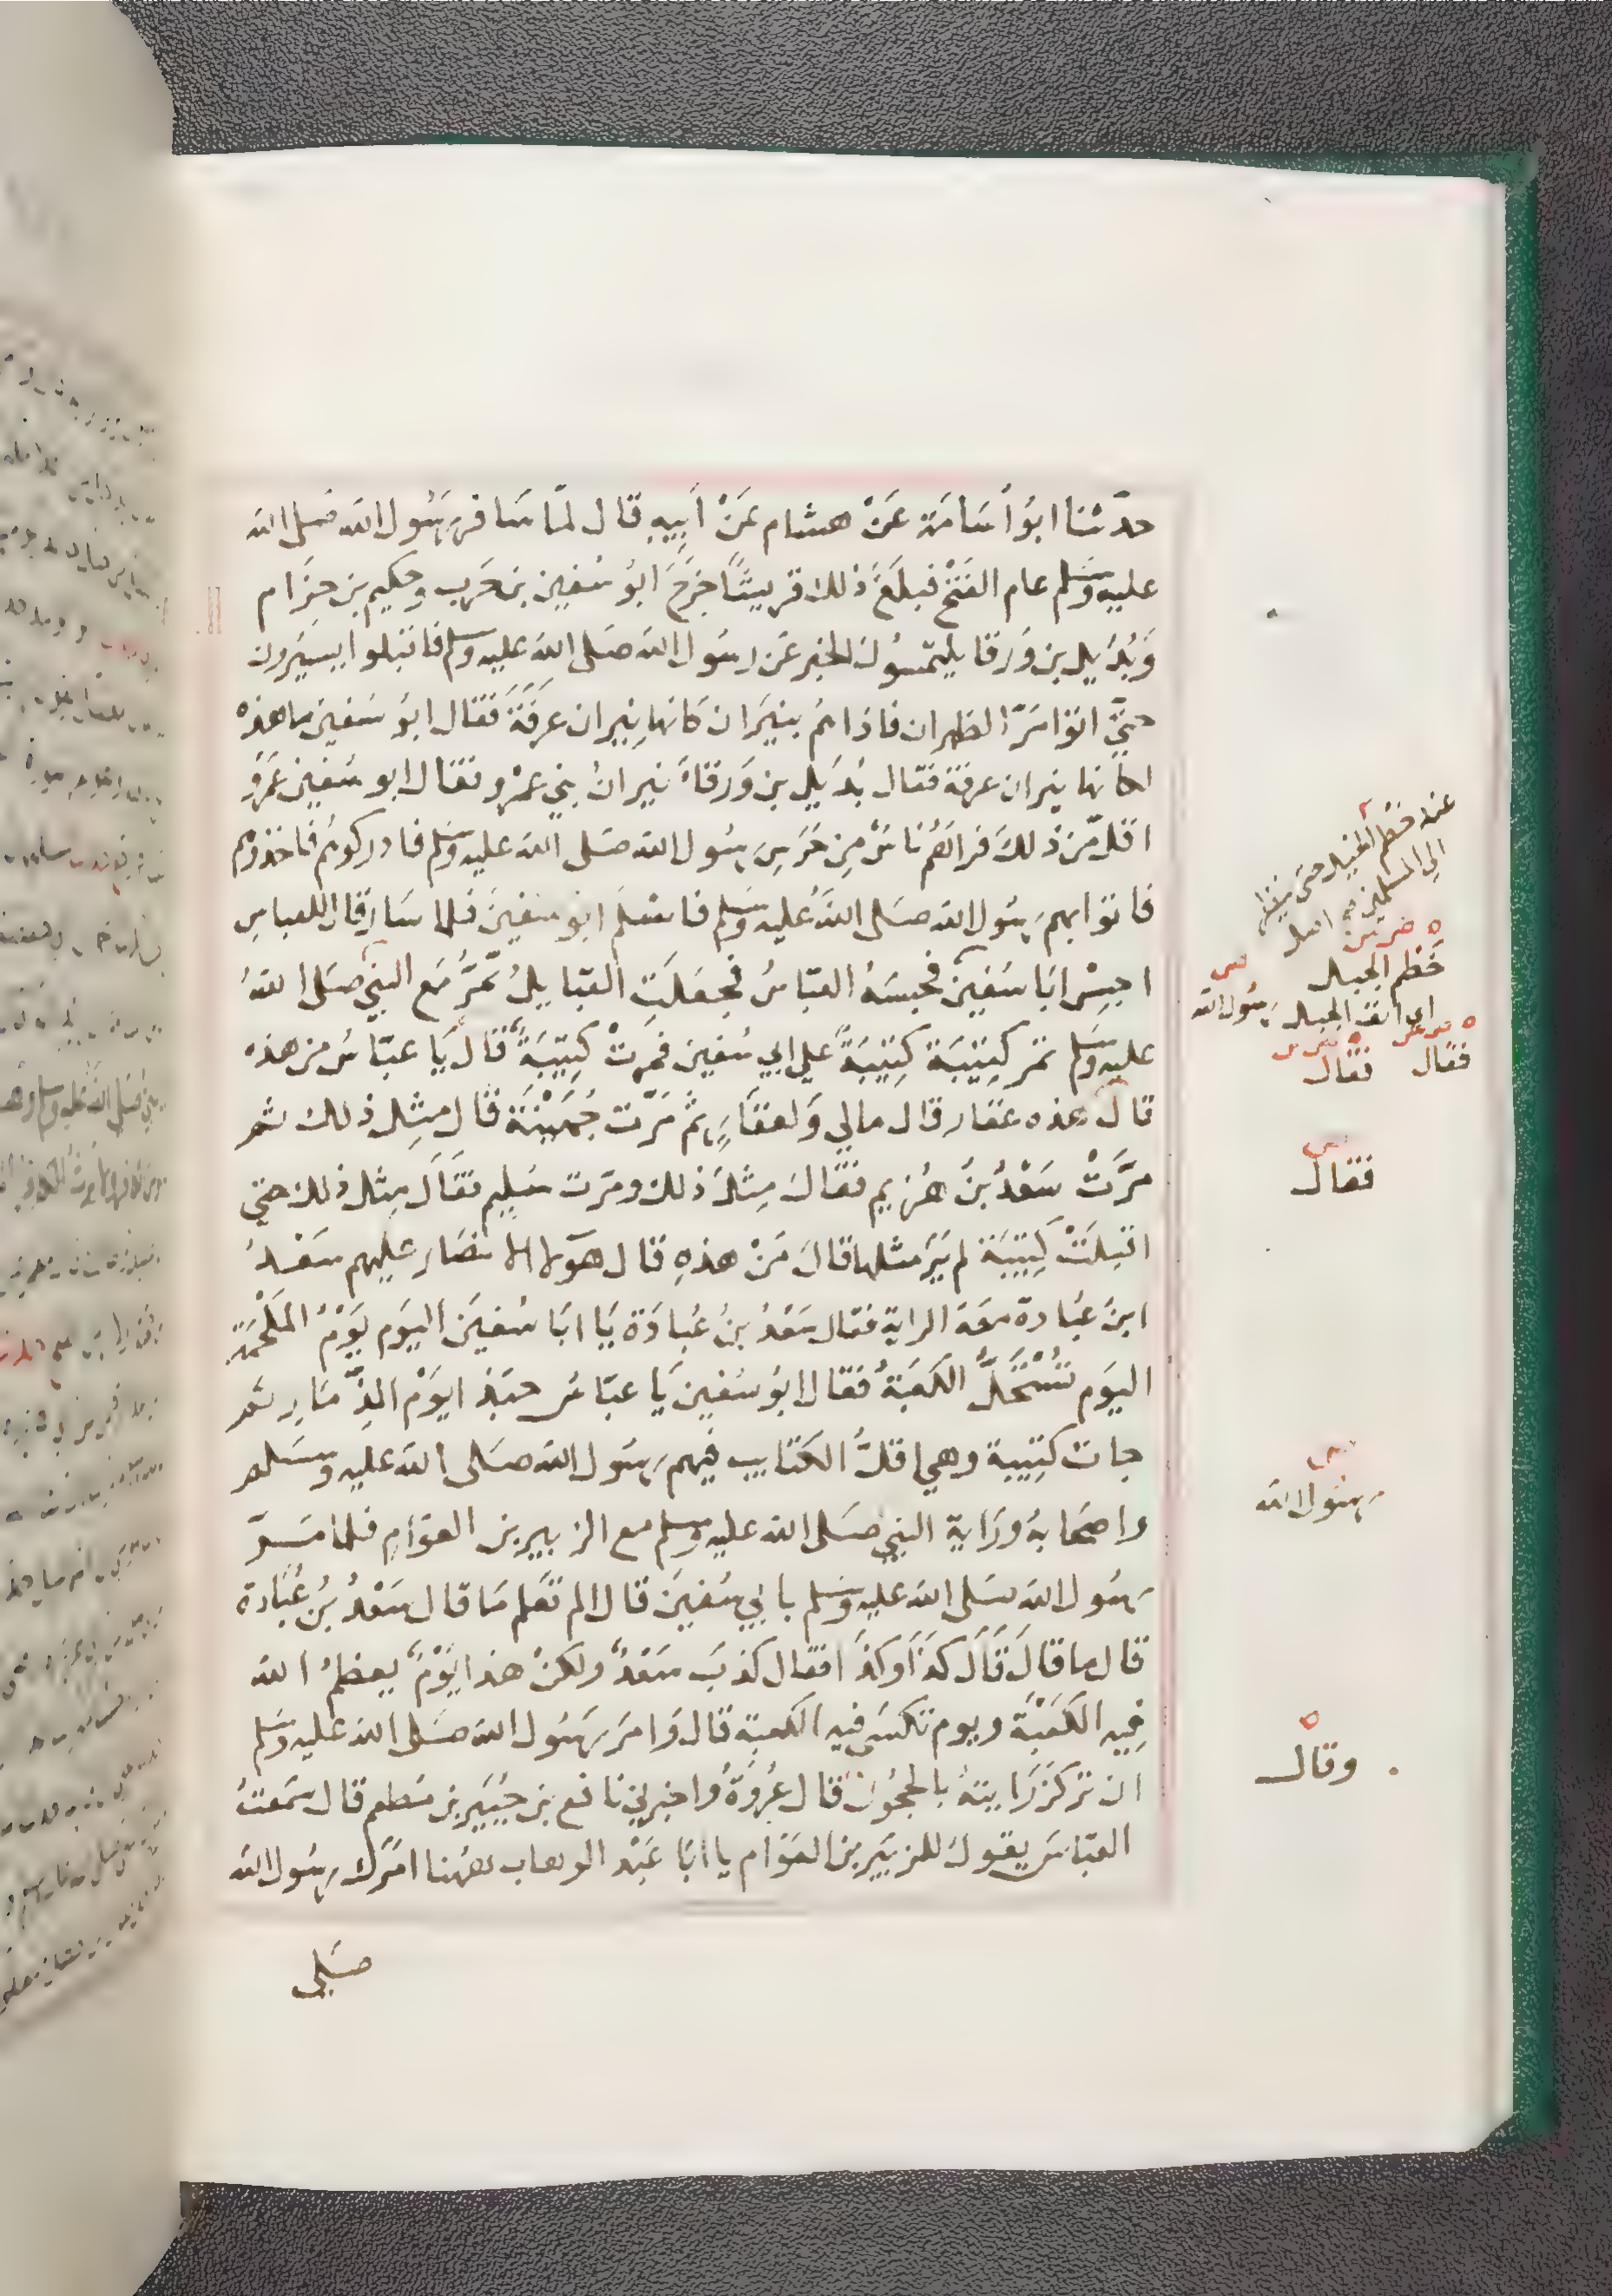 حدّثنا ابوُ أُسَامَة عَنْ هشام عَنْ اَبِيهِ قال لمّا سَافرَ رَسُول الله صَلى الله
عليه وسَلم عام الفَتْح فبلَغَ ذلك قريشًا خرَجَ ابوُ سُفين بن حَرب وحكيم بن حِزَام
وَبُدَيل بن وَرقا يلتمّسُونَ الخبر عَن رسُول الله صَلى الله عليه وسلم فاقبلوا يسيرُون
حتيّ اتوَا مَرّ الظهران فاذا هُم بنيرَان كانها نِيران عرفَةَ فَقال ابوُ سَفين ما هذِه
لكانها نيران عرفة فقال بُدَيل بن وَرقاءَ نيرانُ بنيِ عمْرو فقال ابو سُفين عَمرٌو
اقلّ مّن ذلكَ فرآهُم ناسٌ مِن حَرَسِ رسُول الله صَلى الله عليه وسَلم فادركوهُم فاخذوُهم
فاتوا بهم رَسُول الله صَلى اللهُ عليه وسَلم فاسْلمَ ابوُ سفينَ فلما سَارَ قال للعباسِ
احبِسْ ابَا سُفينَ فحبسَهُ العبّاسُ فجعَلَتِ القبَايلُ تمّرُّ مَع النبيّ صَلى اللهُ
عليه وسَلم تمر كتِيْبَة كتِيْبَةً علي ابي سُفين فمرتْ كتِيْبَةٌ قال يَا عبّاسُ من هذه
قالَ هذه غفار قال مالي وَلغفَارٍ ثمّ مَرّت جُهَيْنَة قال مِثِل ذلك ثمر
مرَّتْ سَعْدُ بنُ هُزيم فقالَ مِثلَ ذلك ومرّت سُليم فقَالَ مِثل ذلك حتي
اقبلَتْ كتِيبَة لم يَرَ مثلها قالَ مَنْ هذِهِ قال هَوَلا الانصَار عليهم سَعْدُ
ابنُ عُبَادة مَعَهُ الراية فقال سَعْدُ بنُ عُبادَة يَا ابَا سُفينَ اليَوم يَوْمُ الملْحَمَةِ
اليَوم تُسْتَحَلُّ الكعبَةُ فقال ابوُ سُفين يَا عبّاسُ حبّذا يَوْم الذّمَارِ ثم
جات كتِيبة وهي اقلُّ الكتايب فيهم رَسُول الله صَلى الله عليه وسَلم
واصحَابهُ ورَاية النبيِ صَلى الله عليه وسلم مع الزبير بن العوّامِ فلما مَرّ
رَسُول الله صَلى الله عليه وسَلم بابي سُفينَ قال الم تعْلم مَا قال سَعْدُ بنُ عُبَادة
قال ما قالَ قَالَ كذَا وَكذَا فقال كذبَ سَعْدٌ ولكنْ هذا يَوْمٌ يعظمُ الله
فِيهِ الكَعْبَةَ ويوم تكسَى فيه الكعبة قال وَامرَ رَسُول الله صَلى الله عليه وسَلم
ان تركزَ رَايتهُ بالحجُون قال عُروَةُ واخبرني نَافع بن جُبَير بن مُطعم قال سَمعتُ
العبّاسَ يقولُ للزبَير بن العوّام يا ابَا عَبْد الله هاهُنا امَرَك رسُول الله
صَلى
عند خطم الخيل حتى ينظر
الي المسلمين
خَطم الجبل
اي انف الجبل
رسُول الله
فقال
فقال
فقال
رسُول الله
وقال